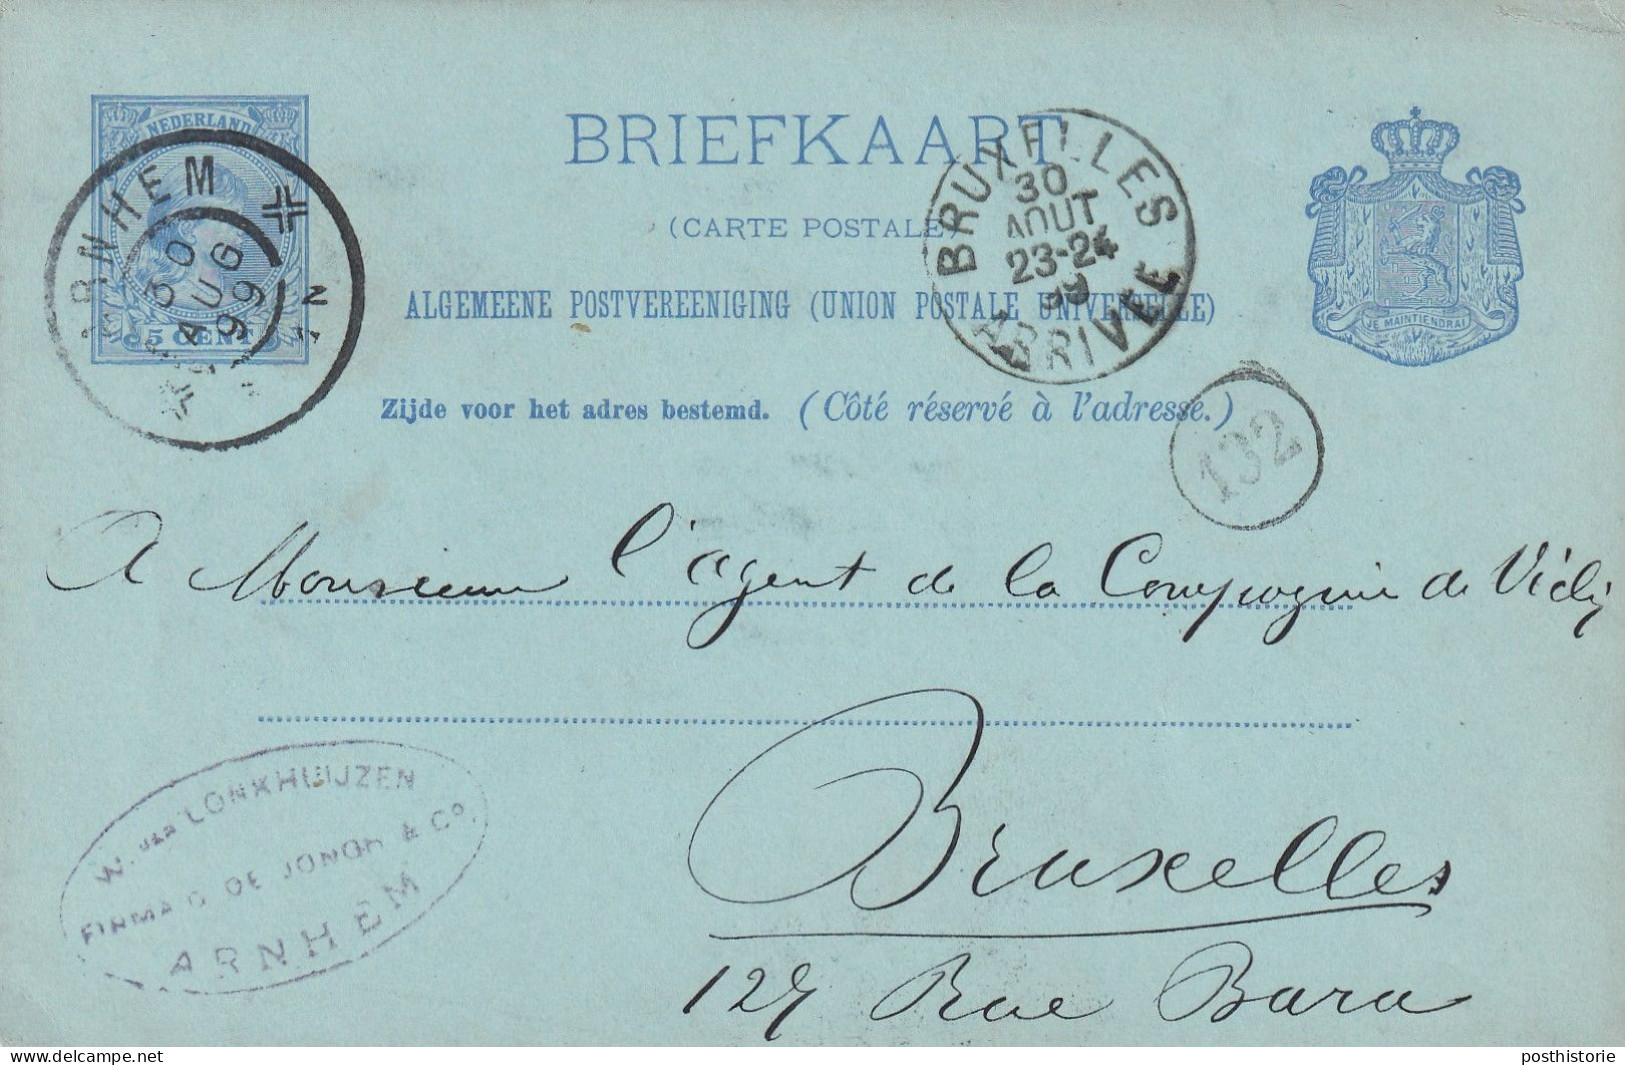 NEDERLAND
5 CENT
ARNHEM
30 AUG 99
BRIEFKAART
(CARTE POSTALE)
ALGEMEENE POSTVEREENIGING (UNION POSTALE UNIVERSELLE)
Zijde voor het adres bestemd. (Côté réservé à l'adresse.)
BRUXELLES
30
AOUT
23-24
99
ARRIVEE
JE MAINTIENDRAI
132
A Monsieur l'agent de la Compagnie de Vichy
Bruxelles
127 Rue Bara
W. van LONKHUIJZEN
FIRMA G DE JONGH & Co.
ARNHEM
posthistorie